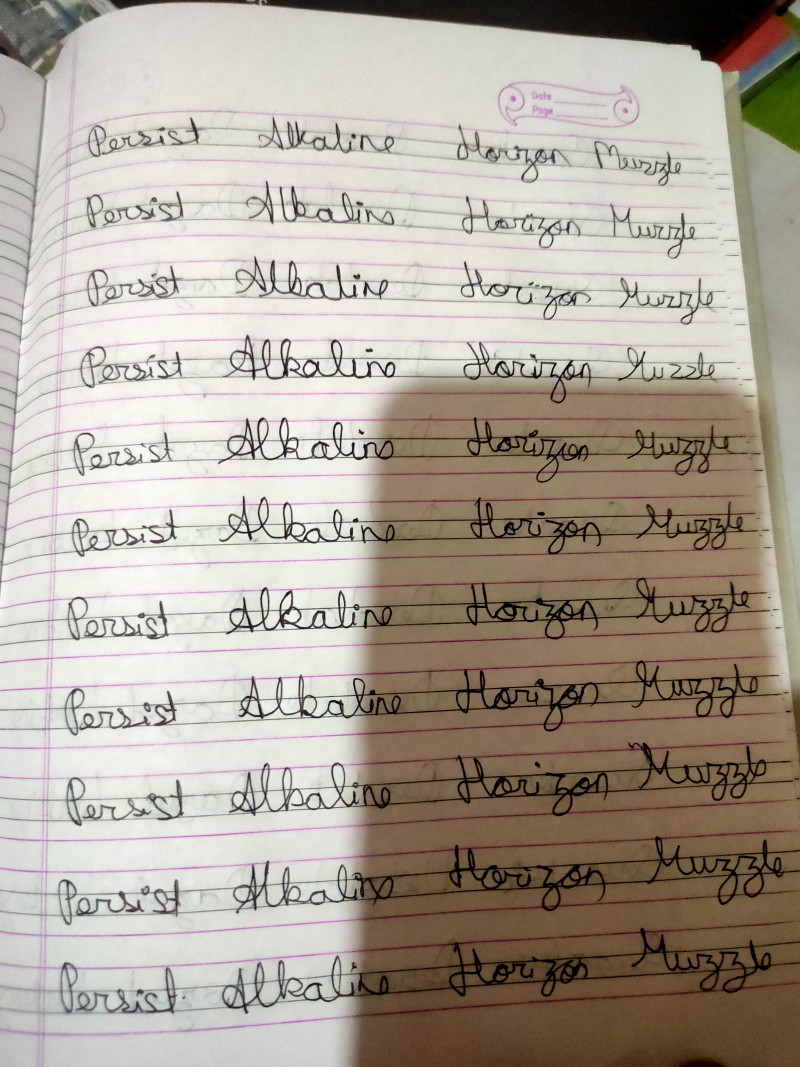 Date
Page
Persist Alkaline Horizon Muzzle
Persist Alkaline Horizon Muzzle
Persist Alkaline Horizon Muzzle
Persist Alkaline Horizon Muzzle
Persist Alkaline Horizon Muzzle
Persist Alkaline Horizon Muzzle
Persist Alkaline Horizon Muzzle
Persist Alkaline Horizon Muzzle
Persist Alkaline Horizon Muzzle
Persist Alkaline Horizon Muzzle
Persist Alkaline Horizon Muzzle